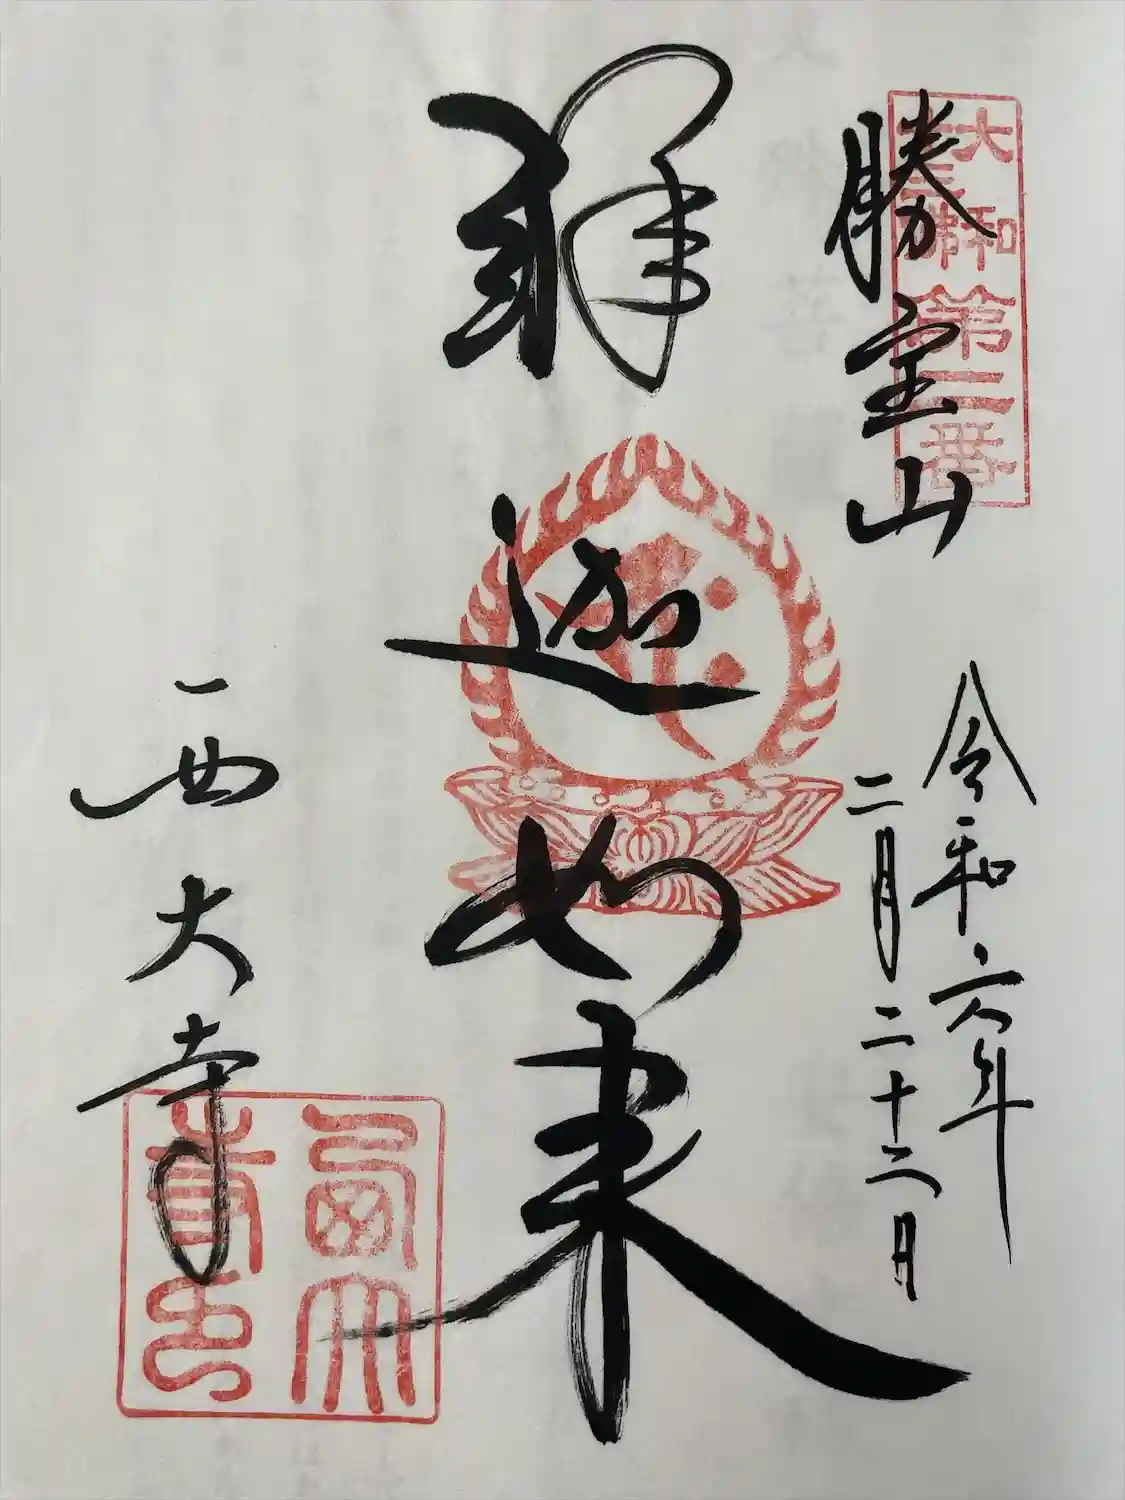 大和
十三佛
第二番
勝宝山
令和六年
二月二十三日
釋迦如来
西大寺
西大
寺印